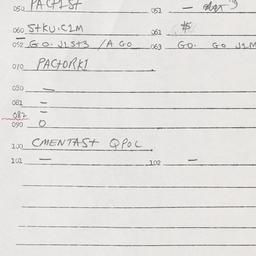 050 PACT1ST 051 —
060 STKU.C1M 061 #5
052 GO. J1ST3 /A GO 063 GO. GO J1M
070 PACTORK1
030 —
081 —
087 —
090 O
100 CMENTAST QPOL
101 — 102 —